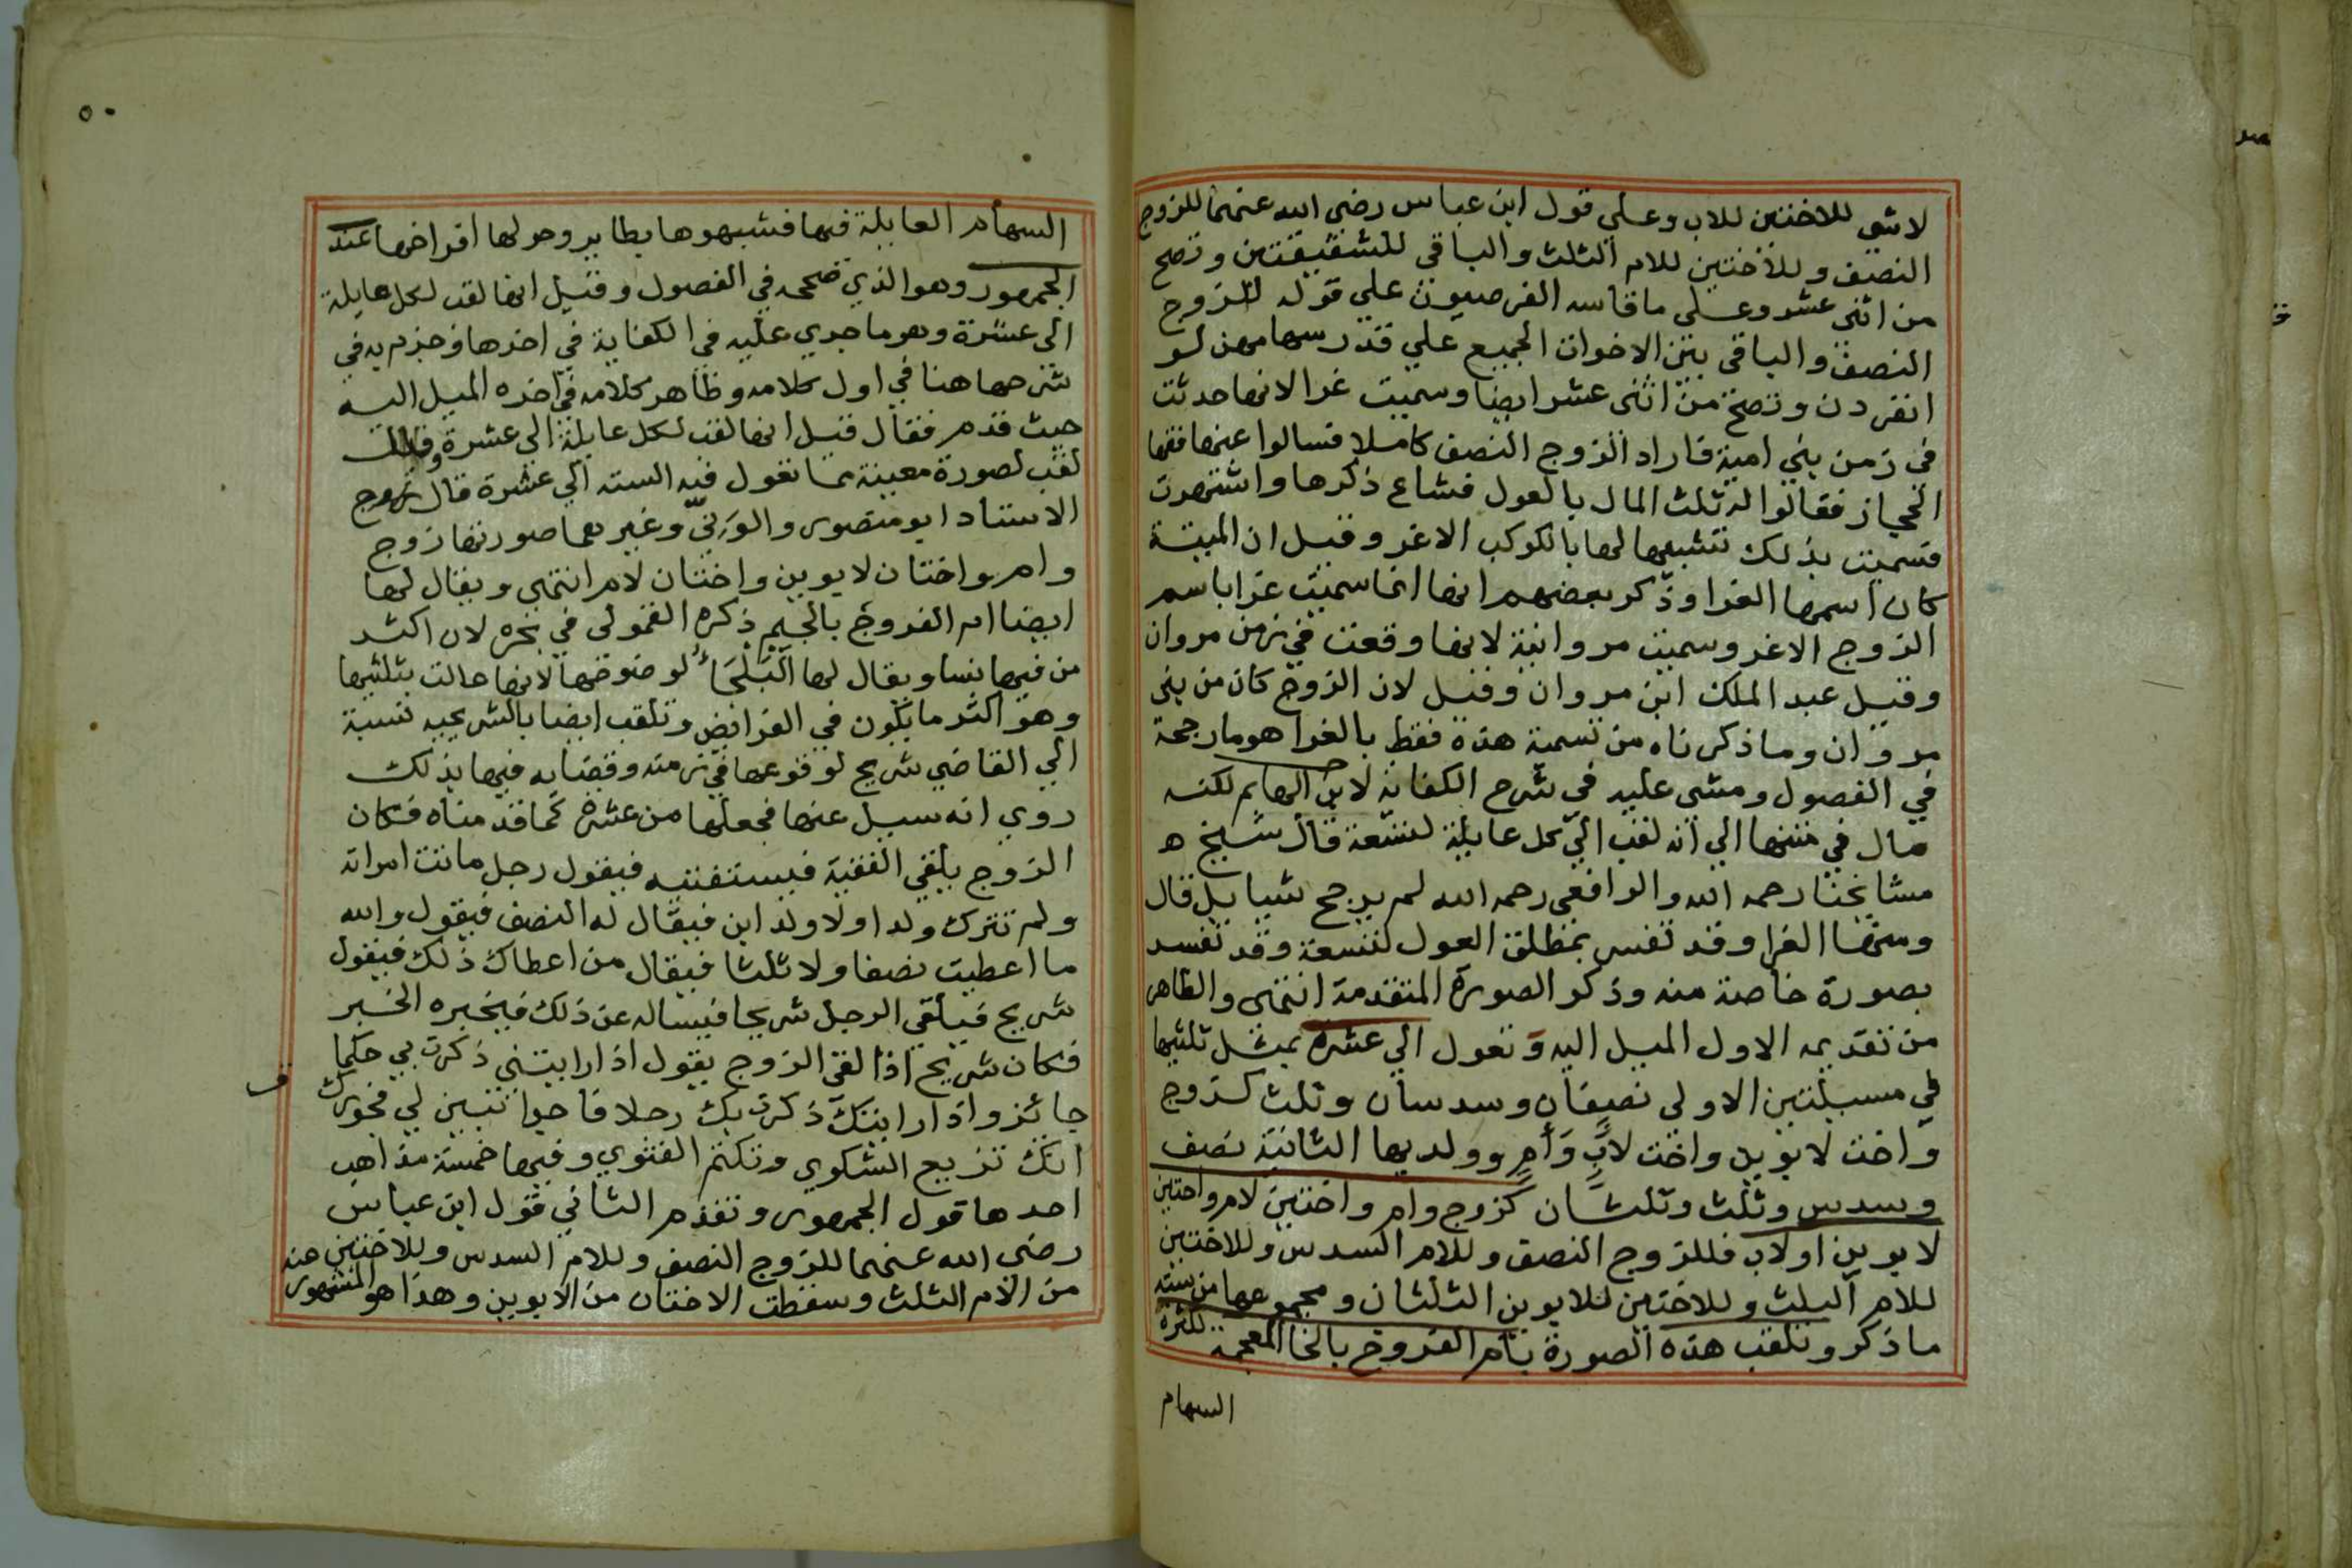 لا شي للاختين للاب وعلي قول ابن عباس رضي الله عنهما للزوج
النصف وللاختين للام الثلث والباقي للشقيقتين وتصح
من اثنى عشر وعلى ما قاسه الفرضيون علي قوله للزوج
النصف والباقي بين الاخوات الجميع علي قدر سهامهن لو
انفردن وتصح من اثنى عشر ايضا وسميت غرا لانها حدثت
في زمن بني امية فاراد الزوج النصف كاملا فسالوا عنها فقها
الحجاز فقالوا له ثلث المال بالعول فشاع ذكرها واشتهرت
فسميت بذلك تشبيها لها بالكوكب الاغر وقيل ان الميتة
كان اسمها الغرا وذكر بعضهم انها انما سميت غرا باسم
الزوج الاغر وسميت مروانية لانها وقعت في زمن مروان
وقيل عبد الملك ابن مروان وقيل لان الزوج كان من بني
مروان وما ذكرناه من تسمية هذه فقط بالغرا هو ما رجحه
في الفصول ومشى عليه في شرح الكفاية لابن الهايم لكنه
مال في متنها الي انه لقب الي كل عايلة لتسعة قال شيخ
مشايخنا رحمه الله والرافعي رحمه الله لم يرجح شيا بل قال
ومنها الغرا وقد تفسر بمطلق العول لتسعة وقد تفسر
بصورة خاصة منه وذكر الصورة المتقدمة انتهى والظاهر
من تقديمه الاول الميل اليه وتعول الي عشرة بمثل ثلثيها
في مسيلتين الاولي نصفان وسدسان وثلث كزوج
واخت لابوين واخت لاب وام وولديها الثانية نصف
وسدس وثلث وثلثان كزوج وام واختين لام واختين
لابوين اولاب فللزوج النصف وللام السدس وللاختين
للام الثلث وللاختين للابوين الثلثان ومجموعها من سته
ما ذكر وتلقب هذه الصورة بام الفروخ بالخا المعجمة لكثرة
السهام
٥٠
السهام العايلة فيها فشبهوها بطاير وحولها افراخها عند
الجمهور وهو الذي صححه في الفصول وقيل انها لقب لكل عايلة
الى عشرة وهو ما جري عليه في الكفاية في اخرها وجزم به في
شرحها هنا في اول كلامه وظاهر كلامه في اخره الميل اليه
حيث قدم فقال قيل انها لقب لكل عايلة الي عشرة
لقب لصورة معينة مما تعول فيه السته الي عشرة قال
الاستاد ابو منصور والونيّ وغيرهما صورتها زوج
وام واختان لابوين واختان لام انتهى ويقال لها
ايضا ام الفروج بالجيم ذكره القمولى في بحره لان اكثر
من فيها نسا ويقال لها البَلْجَاءُ لوضوحها لانها عالت بثلثيها
وهو اكثر ما يكون في الفرائض وتلقب ايضا بالشريحيه نسبة
الي القاضي شريح لوقوعها في زمنه وقضايه فيها بذلك
روي انه سيل عنها فجعلها من عشرة كما قدمناه فكان
الزوج يلقي الفقيه فيستفتيه فيقول رجل ماتت امراته
ولم تترك ولدا ولا ولد ابن فيقال له النصف فيقول والله
ما اعطيت نصفا ولا ثلثا فيقال من اعطاك ذلك فيقول
شريح فيلقي الرجل شريحا فيساله عن ذلك فيخبره الخبر
فكان شريح اذا لقي الزوج يقول اذا رايتني ذكرت بي حكما
جائز واذا رايتك ذكرت بك رجلا فاجرا تبين لي فجورك
انك تذيع الشكوي وتكتم الفتوي وفيها خمسة مذاهب
احدها قول الجمهور وتقدم الثاني قول ابن عباس
رضي الله عنهما للزوج النصف وللام السدس وللاختين عنه
من الام الثلث وسقطت الاختان من الابوين وهذا هو المشهور